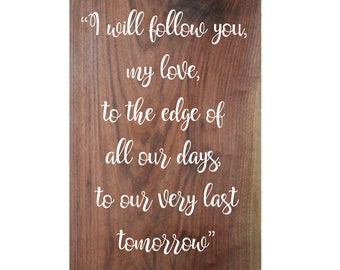 “I will follow you,
my love,
to the edge of
all our days,
to our very last
tomorrow”